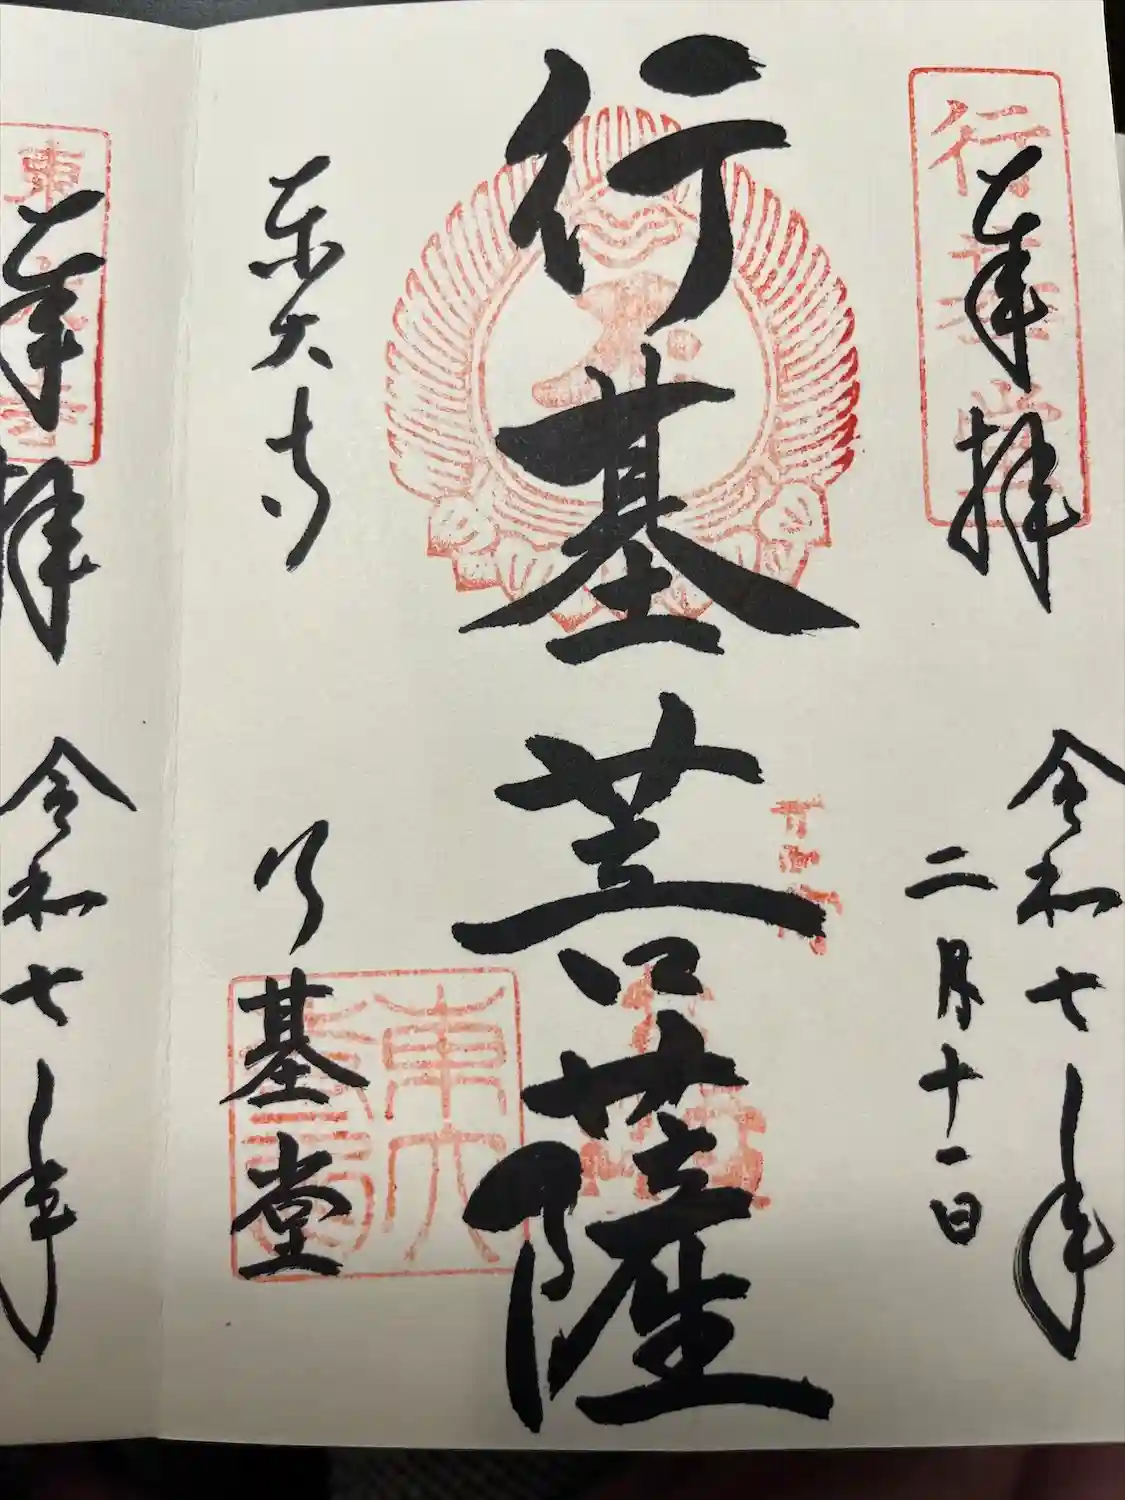 奉拝
令和七年
二月十一日
行基堂
行基菩薩
東大寺
行基堂
東大寺
奉拝
令和七年